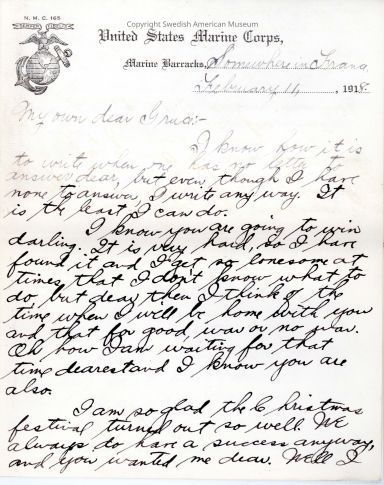 Copyright Swedish American Museum
N. M. C. 165
United States Marine Corps,
Marine Barracks, Somewhere in France
February 11, 1918.
My own dear Grace:-
I know how it is
to write when one has no letter to
answer dear, but even though I have
none to answer, I write any way. It
is the least I can do.
I know you are going to win
darling. It is very hard, so I have
found it and I get so lonesome at
times that I don't know what to
do, but dear then I think of the
time when I will be home with you
and that for good, war or no war.
Oh how I am waiting for that
time dearest and I know you are
also.
I am so glad the Christmas
festival turned out so well. We
always do have a success anyway,
and you wanted me dear. Well I